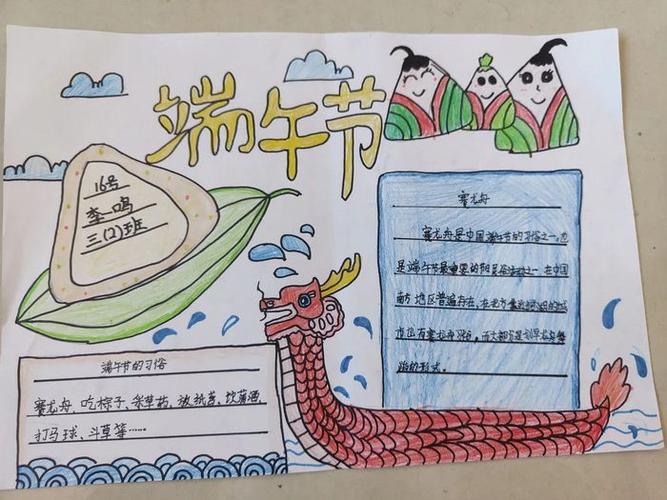 端午节
16号
李一鸣
三(2)班
赛龙舟
赛龙舟是中国端午节的习俗之一,也
是端午节最重要的节日民俗活动之一,在中国
南方地区普遍存在,在北方靠近河湖的城
市也有赛龙舟习俗,而大部分是划旱龙舟舞
龙船的形式。
端午节的习俗
赛龙舟、吃粽子、采草药、放纸鸢、饮蒲酒、
打马球、斗草等……